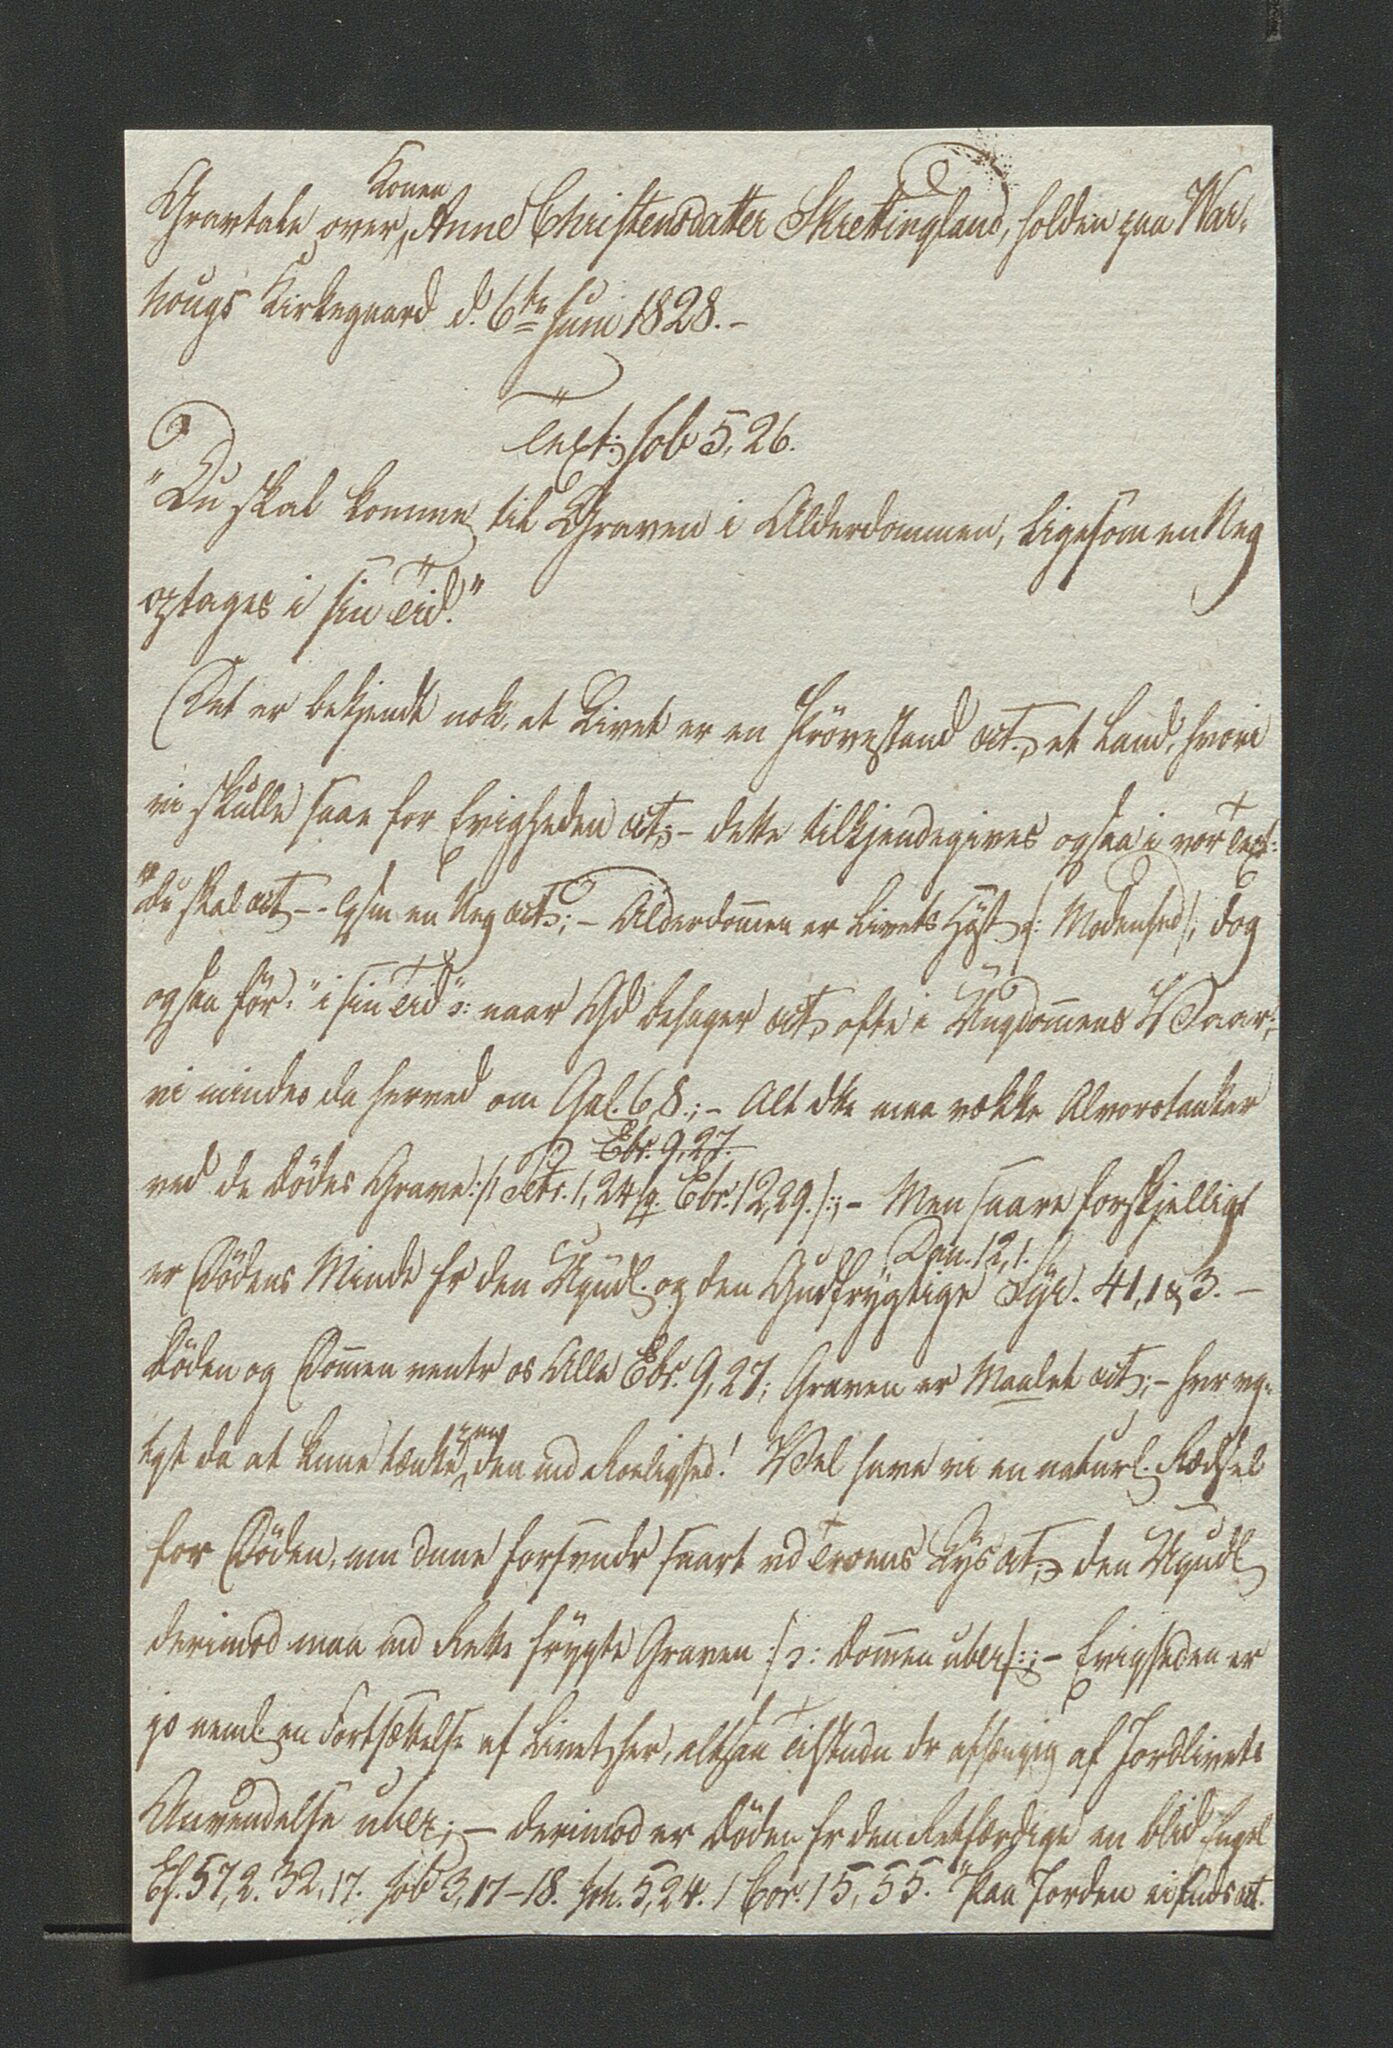 Gravtale over Konen Anne Christensdatter Skrettingland, holden paa War-
hougs Kirkegaard d. 6te Juni 1828. –
Text: Job 5, 26.
"Du skal komme til Graven i Alderdommen, ligesom en Neg
optages i sin Tid."
Det er bekjendt nok, at Livet er en Prøvestand oct., et Land, hvori
vi skulle saae for Evigheden oct; – dette tilkjendegives ogsaa i vor Text:
"du skal oct – – lgsm en Neg oct; – Alderdom̅en er Livets Høst /: Modenhed /, dog
ogsaa før: "i sin Tid" ɔ: naar Gd behager oct, ofte i Ungdom̅ens Vaar; –
vi mindes da herved om Gal. 6, 8.; – Alt dtte maa vække Alvorstanker
ved de Dødes Grave :/ 1 Petr. 1, 24 sq. Ebr. 9, 27. Ebr. 12, 29. /:; – Men saare forskjelligt
er Dødens Minde fr den Ugudl. og den Gudfrygtige Dan. 12, 1. Syr. 41, 1 & 3. –
Døden og Dom̅en ventr os Alle Ebr. 9, 27; Graven er Maalet oct; – hvr vg-
tgt da at kune tænke paa den md Roelighed! Vel have vi en naturl. Rædsel
for Døden, mn dnne forsvindr snart vd Troens Lys oct, den Ugudl
derimod maa md Rette frygte Graven :/ ɔ: Dom̅en uber /:; – Evigheden er
jo neml. en Fortsættelse af Livet her, altsaa Tilstandn dr afhængig af Jordlivets
Anvendelse uber; – derimod er Døden fr den Retfærdige en blid Engel
Es. 57, 2. 32, 17. Job 3, 17–18. Joh. 5, 24. 1 Cor. 15, 55. "Paa Jorden ei finds oct.